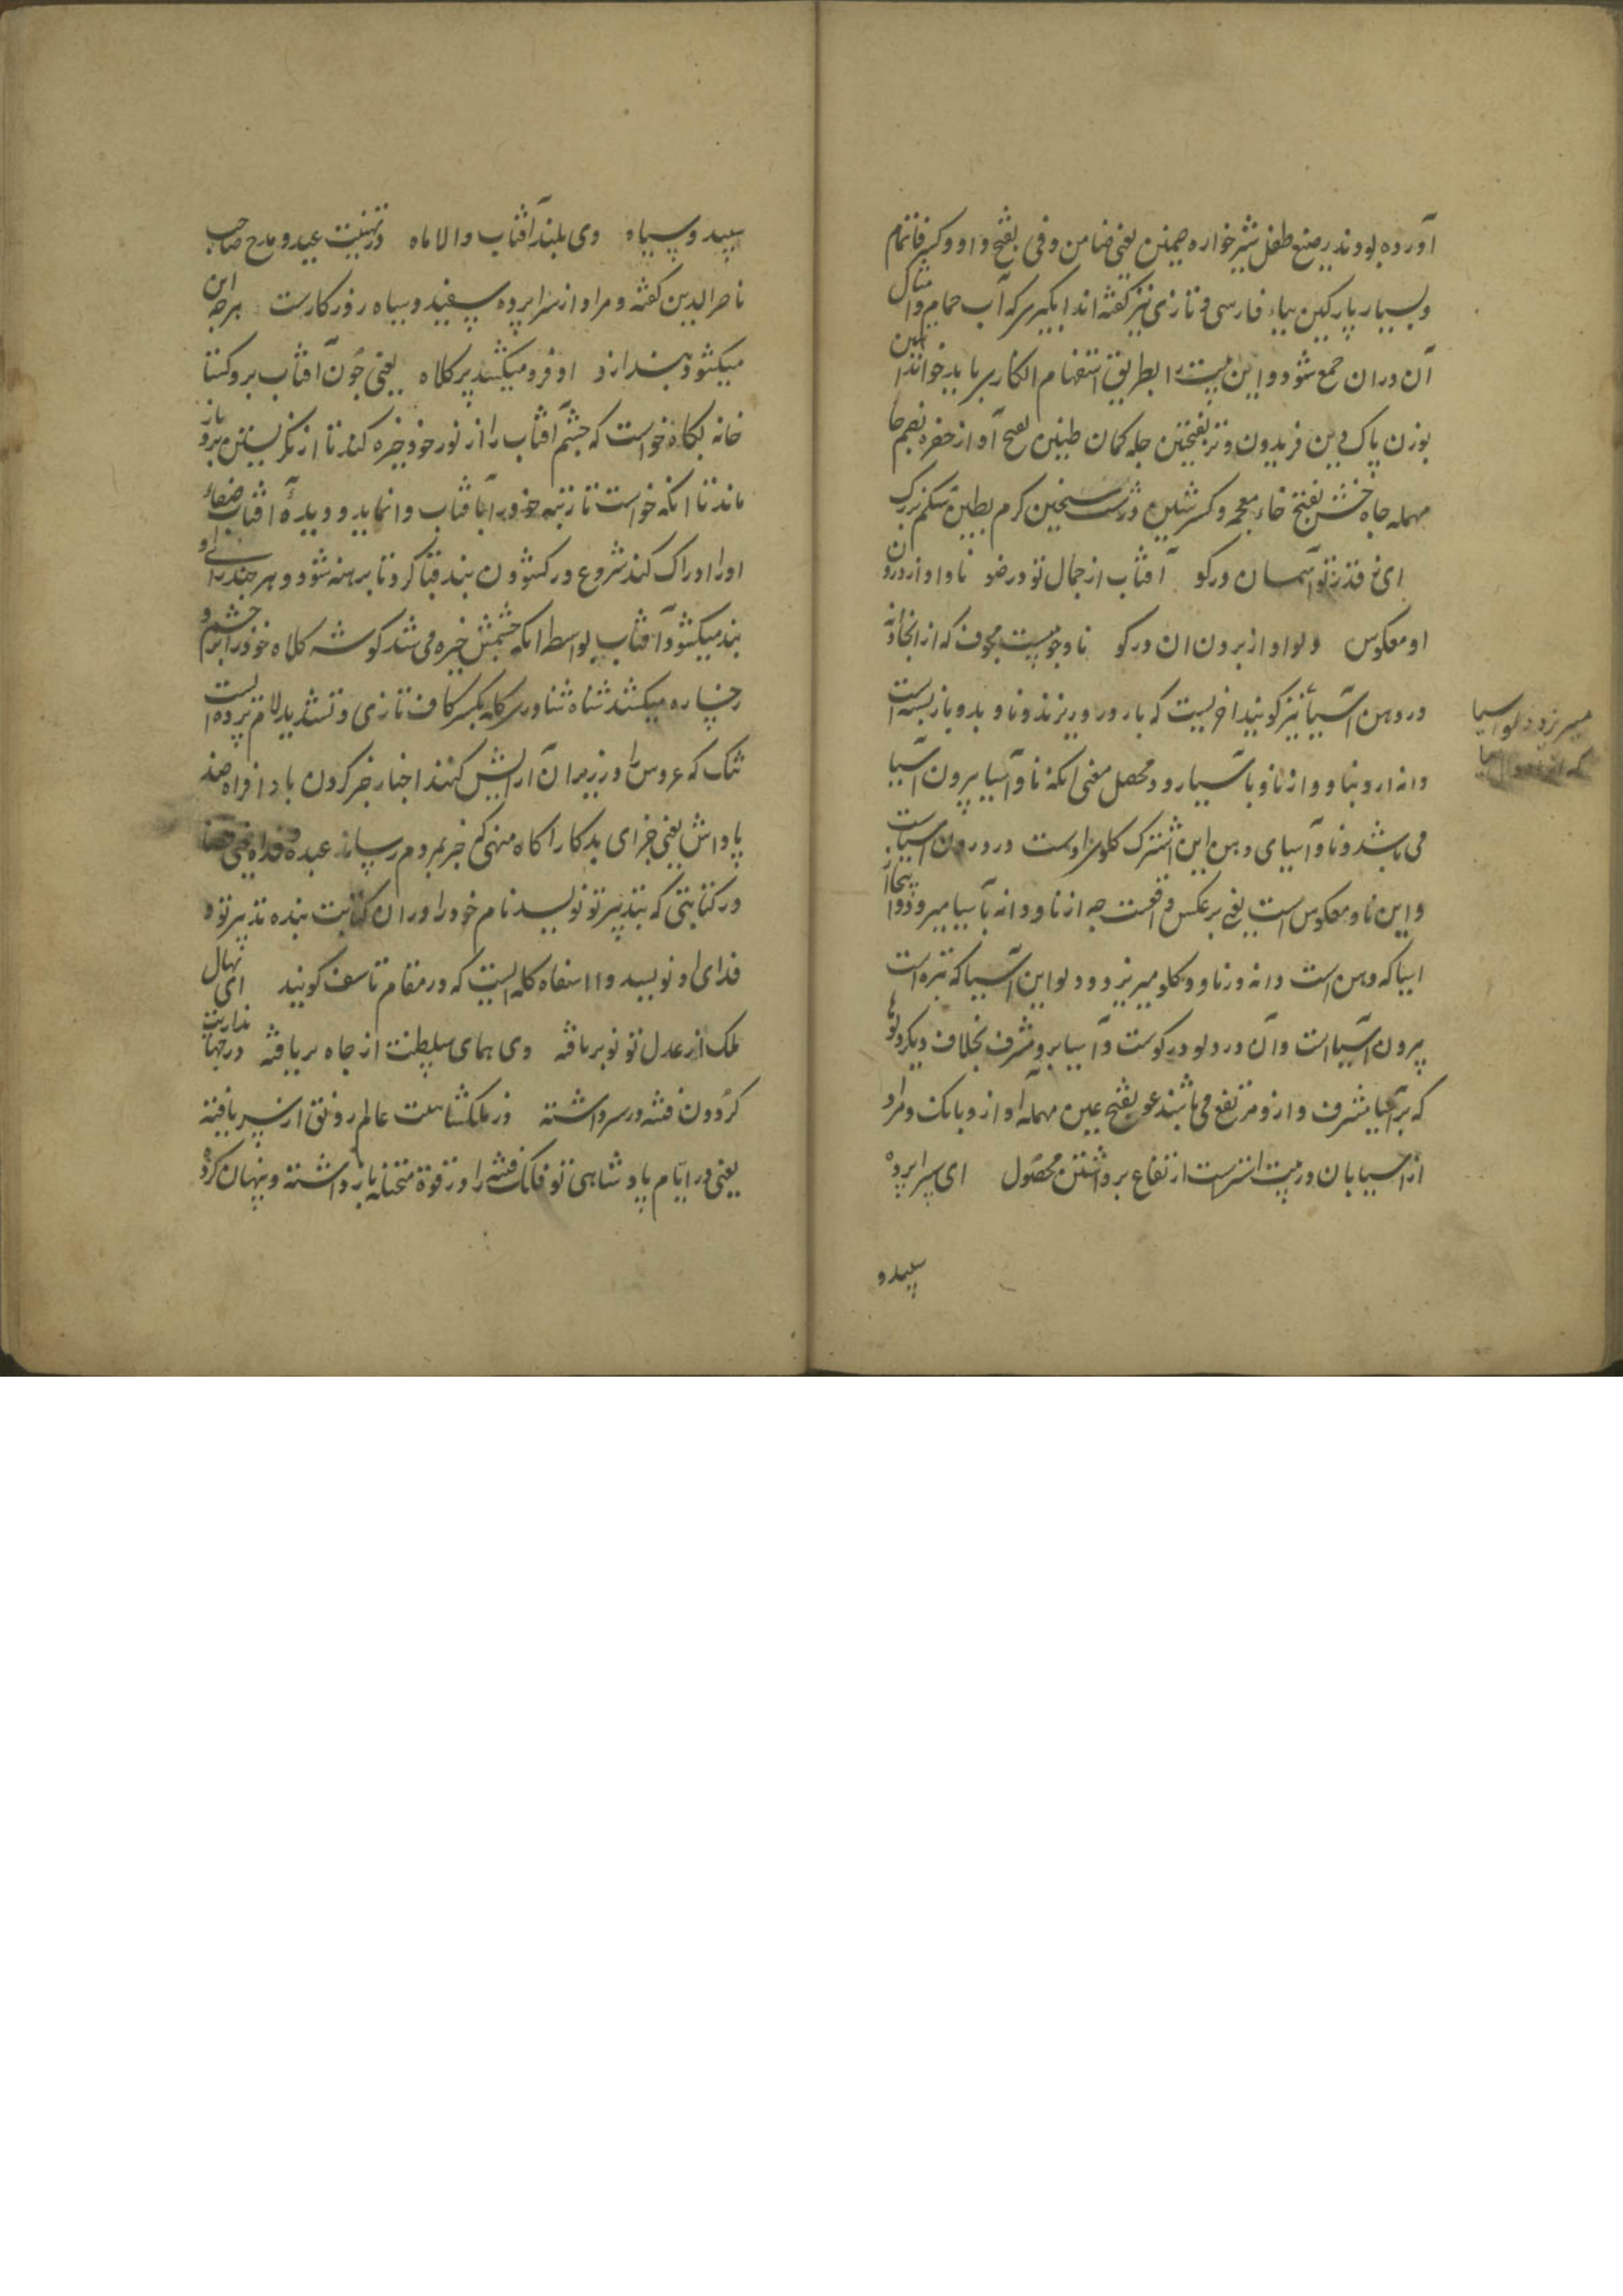 آورده بودند رضیع طفل شیرخواره ضمین یعنی ضامن وفی بفتح واو و کسر فا تمام
و بسیار پارکین بباء فارسی و تازی نیز گفته اند ابگیری که آب حمام و امثال
آن دران جمع شود و این بیت را بطریق استفهام انکاری باید خواند
بوزن پاک دین فریدون وتر بفتحتین چله کمان طنین بفتح آواز حفره بضم حا
مهمله چاه خشن بفتح خاء معجمه و کسر شین درشت سخین کرم بطین شکم بزرک
ای ز قدر تو آسمان در کو آفتاب از جمال تو در ضو ناو او از درون
او معکوس دلو او از برون ان در کو ناو چوبیست مجوف که از انجا دانه
در دهن آسیا نیز کویند اخریست که بار درو ریزند و ناو بدو باز بسته است
دانه ارو بناو و از ناو باسیا رود محصل معنی انکه ناو آسیا بیرون آسیا
می باشد و ناو آسیای دهن این اشترک کلوی اوست در درون آسیاست
و این ناو معکوس است یعنی بر عکس واقعست چه از ناو دانه بآسیا میرود و اینجا از
اسیا که دهن است دانه در ناو و کلو میریزد و دلو این آسیا که تنره است
بیرون آسیا است و آن در دلو در کوست و آسیا برو مشرف بخلاف دیکر دلوها
که بر آسیا مشرف و ازو مرتفع می باشند عو بفتح عین مهمله آواز و بانک و مراد
از آسیابان در بیت اشترست ارتفاع برداشتن محصول ای سراپرده
سپید و
میریزد و دلو اسیا
سپید و سیاه وی بلند آفتاب والا ماه در تهنیت عید و مدح صاحب
ناصر الدین کفته و مراد از سراپرده سفید و سیاه روز کارست هر چه این
میکشود بند از او فرو میکشید پر کلاه یعنی چون آفتاب برو کشا
خانه بکاه خواست که چشم آفتاب را از نور خود خیره کند تا از نکریستن برو باز
ماند تا انکه خواست تا رتبه خود را بآفتاب وانماید و دیده آفتاب ضیاء
او را ادراک کند شروع در کشودن بند قبا کرد تا برهنه شود و هر چند برای او
بند میکشود آفتاب بواسطه انکه چشمش خیره می شد کوشه کلاه خود را بر چشم و
رخساره میکشید شناه شناوری کله بکسر کاف تازی و تشدید لام پرده است
تنک که عروس را در زیر آن ارایش کنند اخبار خبر کردن باد افراه ضد
پاداش یعنی جزای بد کار اکاه منهی که خبر بمردم رساند عبده فداه یعنی
در کتابتی که بتدبیر تو نویسد نام خود را در ان کتابت بنده تدبیر تو و
فدای او نویسد وا اسفاه کله ایست که در مقام تاسف کویند ای نهال
ملک از عدل تو نو بر یافته وی همای سلطنت از جاه پر یافته در جهانداریت
کردون فتنه در سر داشته وز ملکشاهیت عالم رونق از سر یافته
یعنی در ایام پادشاهی تو فلک فتنه را در قوة متخیله باز داشته و پنهان کرده